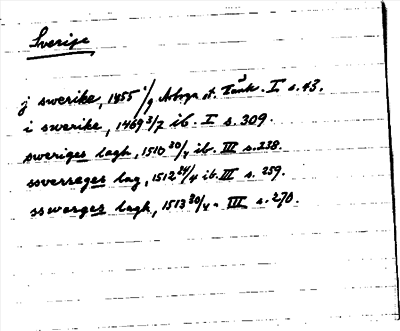 Sverige
j swerike, 1455 1/9 Arboga st. Tänk. I s. 43.
i swerike, 1469 3/7 ib. I s. 309.
sweriges lagh, 1510 30/4 ib. III s. 238.
ssverreges lag, 1512 24/4 ib. III s. 259.
sswerges lagh, 1513 30/4 - III s. 270.